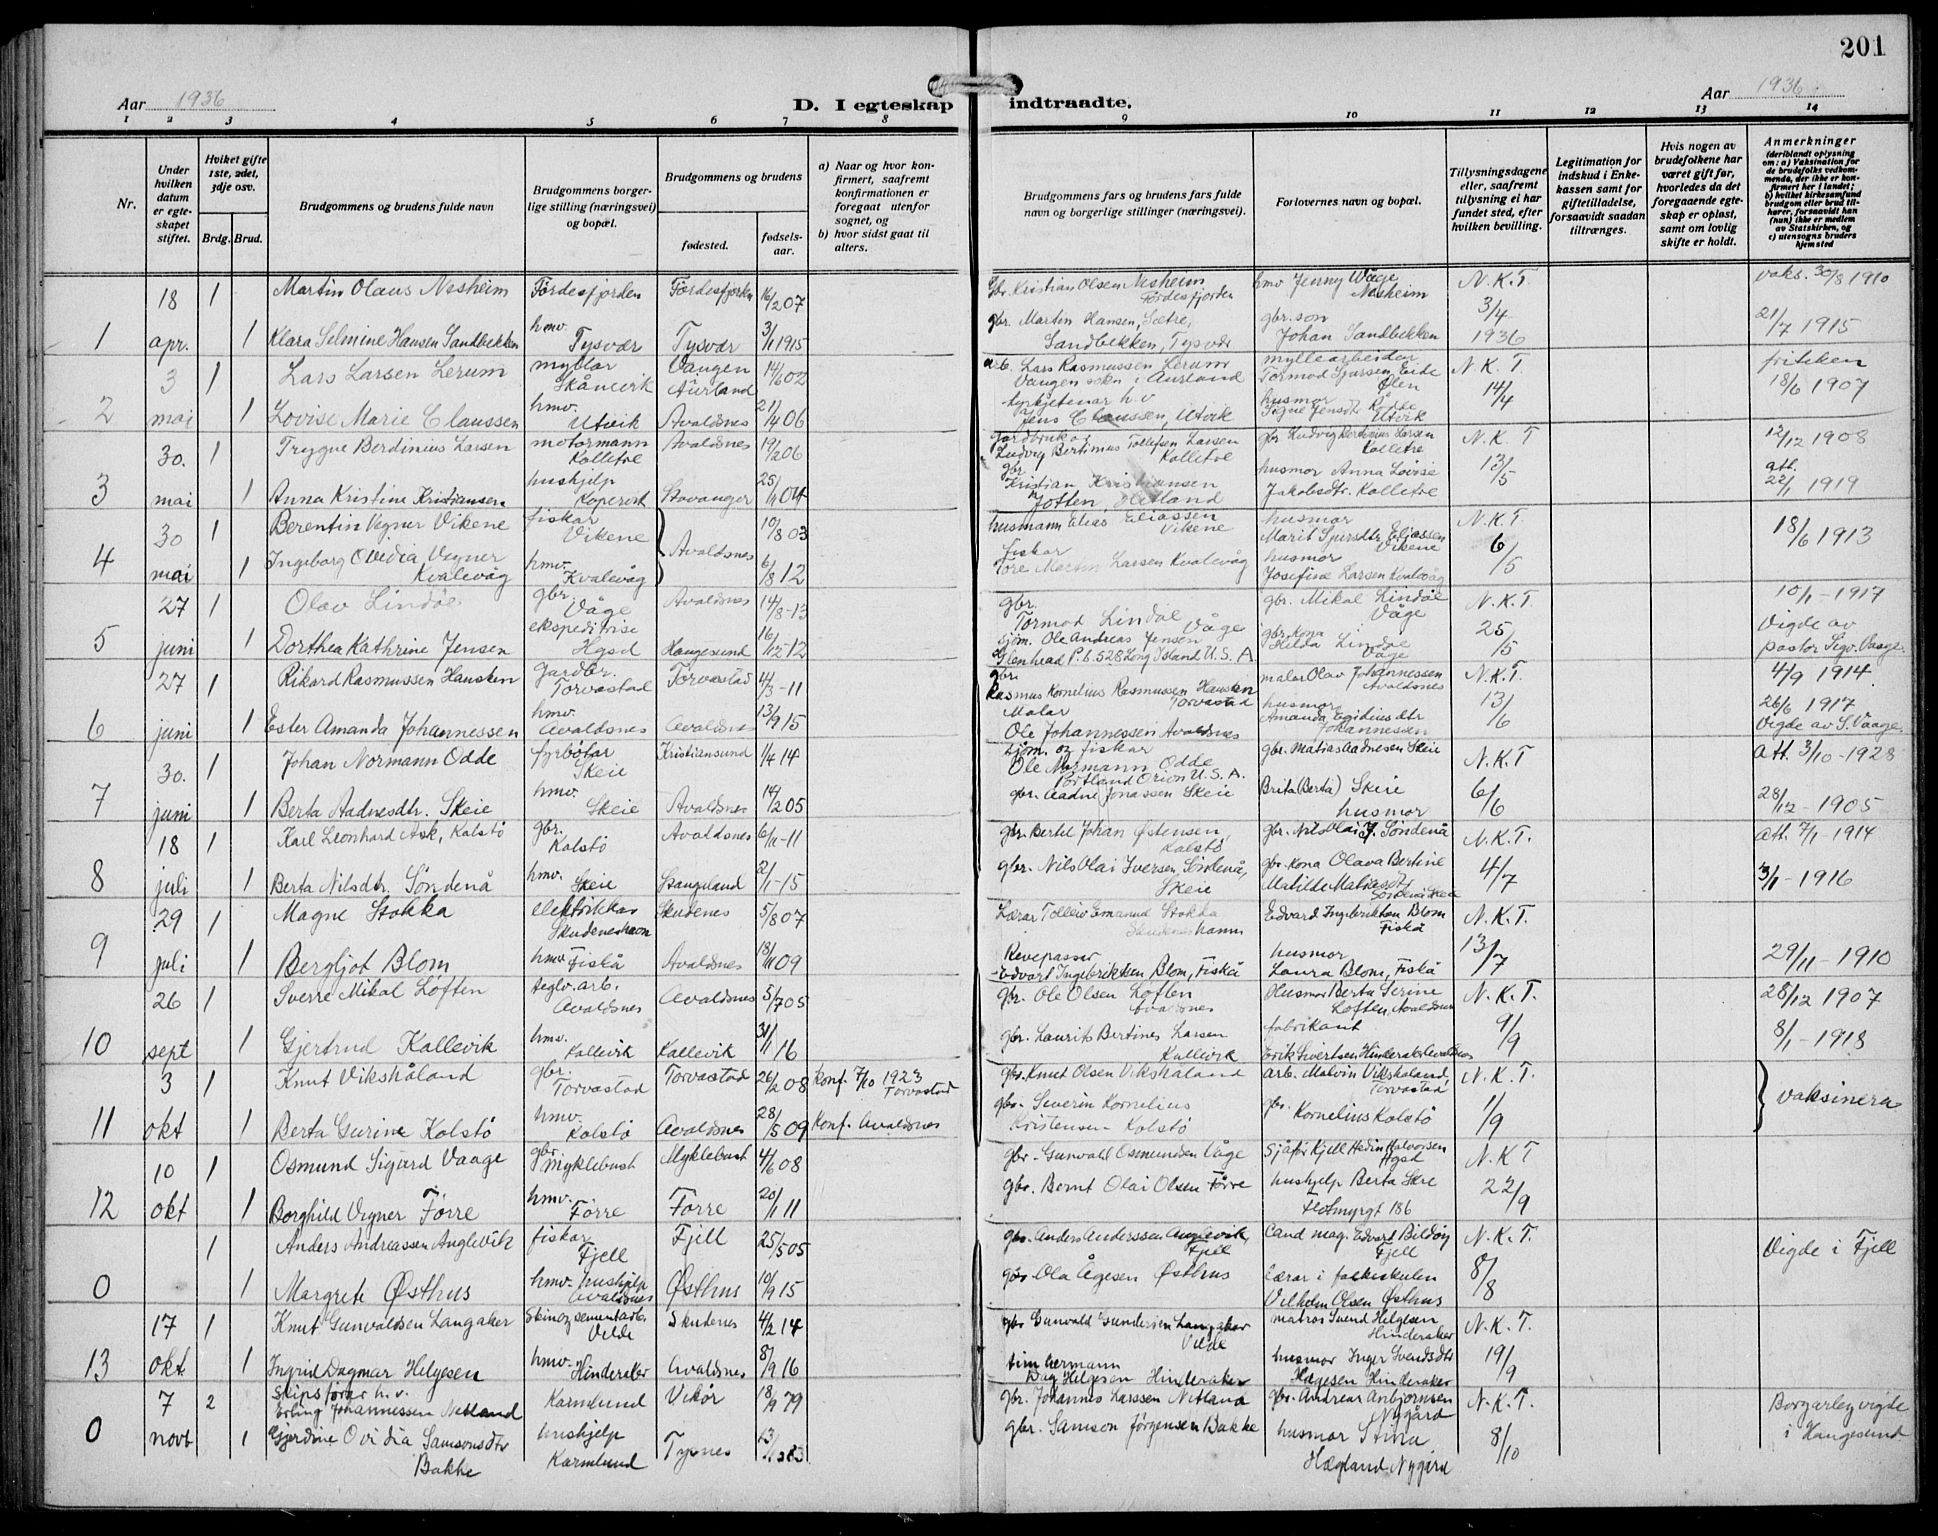 201
Aar 1936
D. I egteskap indtraadte.
Aar 1936
1 2 3 4 5 6 7 8 9 10 11 12 13 14
Nr.
Under hvilken datum er egteskapet stiftet.
Hviket gifte 1ste, 2det, 3dje osv.
Brdg. Brud.
Brudgommens og brudens fulde navn
Brudgommens borgerlige stilling (næringsvei) og bopæl.
Brudgommens og brudens
fødested.
fødselsaar.
a) Naar og hvor konfirmert, saafremt konfirmationen er foregaat utenfor sognet, og
b) hvor sidst gaat til alters.
Brudgommens fars og brudens fars fulde navn og borgerlige stillinger (næringsvei).
Forlovernes navn og bopæl.
Tillysningsdagene eller, saafremt tillysning ei har fundet sted, efter hvilken bevilling.
Legitimation for indskud i Enkekassen samt for giftetilladelse, forsaavidt saadan tiltrænges.
Hvis nogen av brudefolkene har været gift før, hvorledes da det foregaaende egteskap er opløst, samt om lovlig skifte er holdt.
Anmerkninger
(deriblandt oplysning om: a) Vaksination for de brudefolks vedkommende, der ikke er konfirmert her i landet; b) hvilket kirkesamfund brudgom eller brud tilhører, forsaavidt han (hun) ikke er medlem av Statskirken, og c) utensogns bruders hjemsted
18 1 Martin Olaus Nesheim Førdesfjorden Førdesfjorden 16/2 07 Gbr. Kristian Olsen Nesheim Førdesfjorden Hmv Jenny Våge Nesheim N.K.T. vaks. 30/8 1910
1 apr. 1 Klara Selmine Hansen Sandbekken hmv. Tysvær Tysvær 3/11 1915 gbr. Martin Hansen, Sætre, Sandbekken, Tysvær gbr. son Johan Sandbekken 3/4 1936 21/7 1915
3 1 Lars Larsen Lerum myllar Skånevik Vangen Aurland 14/6 02 arb. Lars Rasmussen Lerum Vangen sokn i Aurland myllearbeider Tormod Sjursen Eide Ølen N.K.T. 14/4 18/6 1907
2 mai 1 Lovise Marie Claussen hmv. Utvik Avaldsnes 21/4 06 Jens Claussen, Utvik husmor Signe Jensdtr Rådbe Utvik
30. 1 Trygve Berdinius Larsen motormann Kolletre Avaldsnes 14/2 06 gardbrukar Ludvig Bertinius Tollefsen Larsen Kolletre gbr. Ludvig Bertinius Larsen Kolletre N.K.T 12/12 1908
3 mai 1 Anna Kristine Kristiansen hushjelp Kopervik Stavanger 25/1 04 gbr. Kristian Kristiansen Jøtten, Hetland husmor Anna Lovise Jakobsdtr. Kolletre 13/5 att. 22/1 1919
30 1 Berentin Vegner Vikene fiskar Vikene Avaldsnes 10/8 03 husmann Elias Eliassen Vikene husmor Marit Sjursdtr Eliassen Vikene N.K.T. 18/6 1913
4 mai 1 Ingeborg Ovedia Vegner Kvalevåg hmv. Kvalevåg 6/8 12 fiskar Tore Martin Larsen Kvalevåg husmor Josefine Larsen Kvalevåg 6/5
27 1 Olav Lindøe gbr. Våge Avaldsnes 14/8-13 gbr. Tormod Lindal Våge gbr. Mikal Lindøe Våge N.K.T. 10/1-1917
5 juni 1 Dorthea Kathrine Jensen ekspeditrise Hgsd Haugesund 16/12-12 sjøm. Ole Andreas Jensen Glenhead P.b. 528 Long Island U.S.A gbr. kona Hilda Lindøe Våge 25/5 Vigde av pastor Sigv. Vaage
27 1 Rikard Rasmussen Hausken Gardbr. Torvastad Torvastad 4/3-11 gbr. Rasmus Kornelius Rasmussen Hausken Torvastad malar Olav Johannessen Avaldsnes N.K.T. 4/9 1914
6 juni 1 Ester Amanda Johannessen hmv. Avaldsnes Avaldsnes 13/9 15 Malar Ole Johannessen Avaldsnes husmor Amanda Egidiusdtr Johannessen 13/6 26/6 1917 Vigde av S. Vaage
30. 1 Johan Normann Odde fyrbøtar Skeie Kristiansund 1/4 14 sjøm. og fiskar Ole Normann Odde Portland Orion U.S.A. gbr. Matias Aadnesen Skeie N.K.T att. 3/10-1928
7 juni 1 Berta Aadnesdtr. Skeie hmv. Skeie Avaldsnes 14/2 05 gbr. Aadne Jonassen Skeie Brita (Berta) Skeie husmor 6/6 28/12-1905
18 1 Karl Leonhard Ask, Kolstø gbr. Kolstø Avaldsnes 6/11-11 gbr. Bertel Johan Østensen, Kolstø gbr. Nils Olai J. Søndenå N.K.T. att. 7/1-1914
8 juli 1 Berta Nilsdtr. Søndenå hmv. Skeie Stangeland 2/1-15 gbr. Nils Olai Iversen Søndenå, Skeie gbr. kona Olava Bertine Matilde Matiasdtr Søndenå Skeie 4/7 3/1-1916
29 1 Magne Stokka elektrikkar Skudeneshavn Skudenes 5/8 07 Lærar Tollev Emanuel Stokka Skudeneshamn Edvard Ingebriktsen Blom Fiskå N.K.T.
9 juli 1 Bergljot Blom hmv Fiskå Avaldsnes 18/11 09 Revepasser Edvart Ingebriktsen Blom, Fiskå husmor Laura Blom, Fiskå 13/7 29/11-1910
26 1 Sverre Mikal Løften teglv. arb. Avaldsnes Avaldsnes 5/7 05 gbr. Ole Olsen Løften Avaldsnes Husmor Berta Serine Løften, Avaldsnes N.K.T. 28/12 1907
10 sept 1 Gjertrud Kallevik hmv. Kallevik Kallevik 31/1 16 gbr. Laurits Bertines Larsen Kallevik fabrikant Erik Sivertsen Hinderaker Avaldsnes 9/9 8/1-1918
3 1 Knut Vikshåland gbr. Torvastad Torvastad 26/2 08 Konf. 7/10 1923 Torvastad gbr. Knut Olsen Vikshåland arb. Malvin Vikshåland, Torvastad N.K.T. vaksinera
11 okt 1 Berta Gurine Kolstø hmv. Kolstø Avaldsnes 28/5 09 Konf. Avaldsnes gbr. Severin Kornelius Kristensen Kolstø gbr. Kornelius Kolstø 1/9
10 1 Osmund Sigurd Vaage gbr. Myklebust Myklebust 4/6 08 gbr. Gunvald Osmundsen Våge Sjåfør Kjell Hedin Halvorsen Hgsd N.K.T
12 okt 1 Borghild Vegner Førre hmv. Førre Førre 20/1 11 gbr. Bernt Olai Olsen Førre hushjelp Berta Skre Flotmyrgt 186 22/9
1 Anders Andreassen Anglevik fiskar Fjell Fjell 25/5 05 gbr. Anders Anderssen Anglevik, Fjell Cand mag. Edvard Bildøy Fjell N.K.T. Vigde i Fjell
0 1 Margrete Østhus hmv. hushjelp Avaldsnes Østhus 10/9 15 gbr. Ola Ågesen Østhus Lærar i folkeskulen Vilhelm Olsen Østhus 8/8
17 1 Knut Gunvaldsen Langaker Stein og sementarb. Velde Skudenes 4/2 14 gbr Gunvald Gundersen Langaker Velde matros Svend Helgesen Hinderaker N.K.T.
13 okt. 1 Ingrid Dagmar Helgesen hmv. Hinderaker Avaldsnes 8/9 16 timbermann Dag Helgesen Hinderaker husmor Inger Svendsdtr Helgesen Hinderaker 19/9
7 2 Skipsførar h.v. Erling Johannessen Netland Karmlund Vikør 18/9 79 gbr. Johannes Larssen Netland gbr. Andreas Anbjørnsen Nygård N.K.T. Borgarleg vigde i Haugesund
0 novb 1 Gjerdine Ovidia Samsonsdtr Bakke hushjelp Karmlund Tysnes gbr. Samson Jørgensen Bakke husmor Stina Hægland, Nygård 8/10